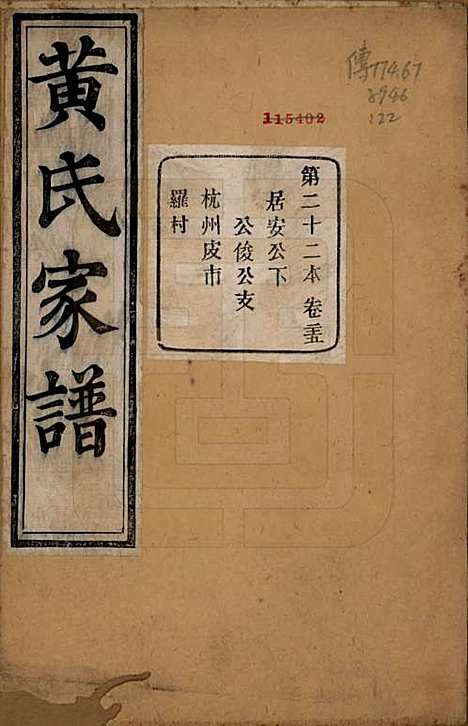 黄氏家譜
第二十二本 卷三五
居安公下
公俊公支
杭州皮市
羅村
115402
傳774.67
8946
:22